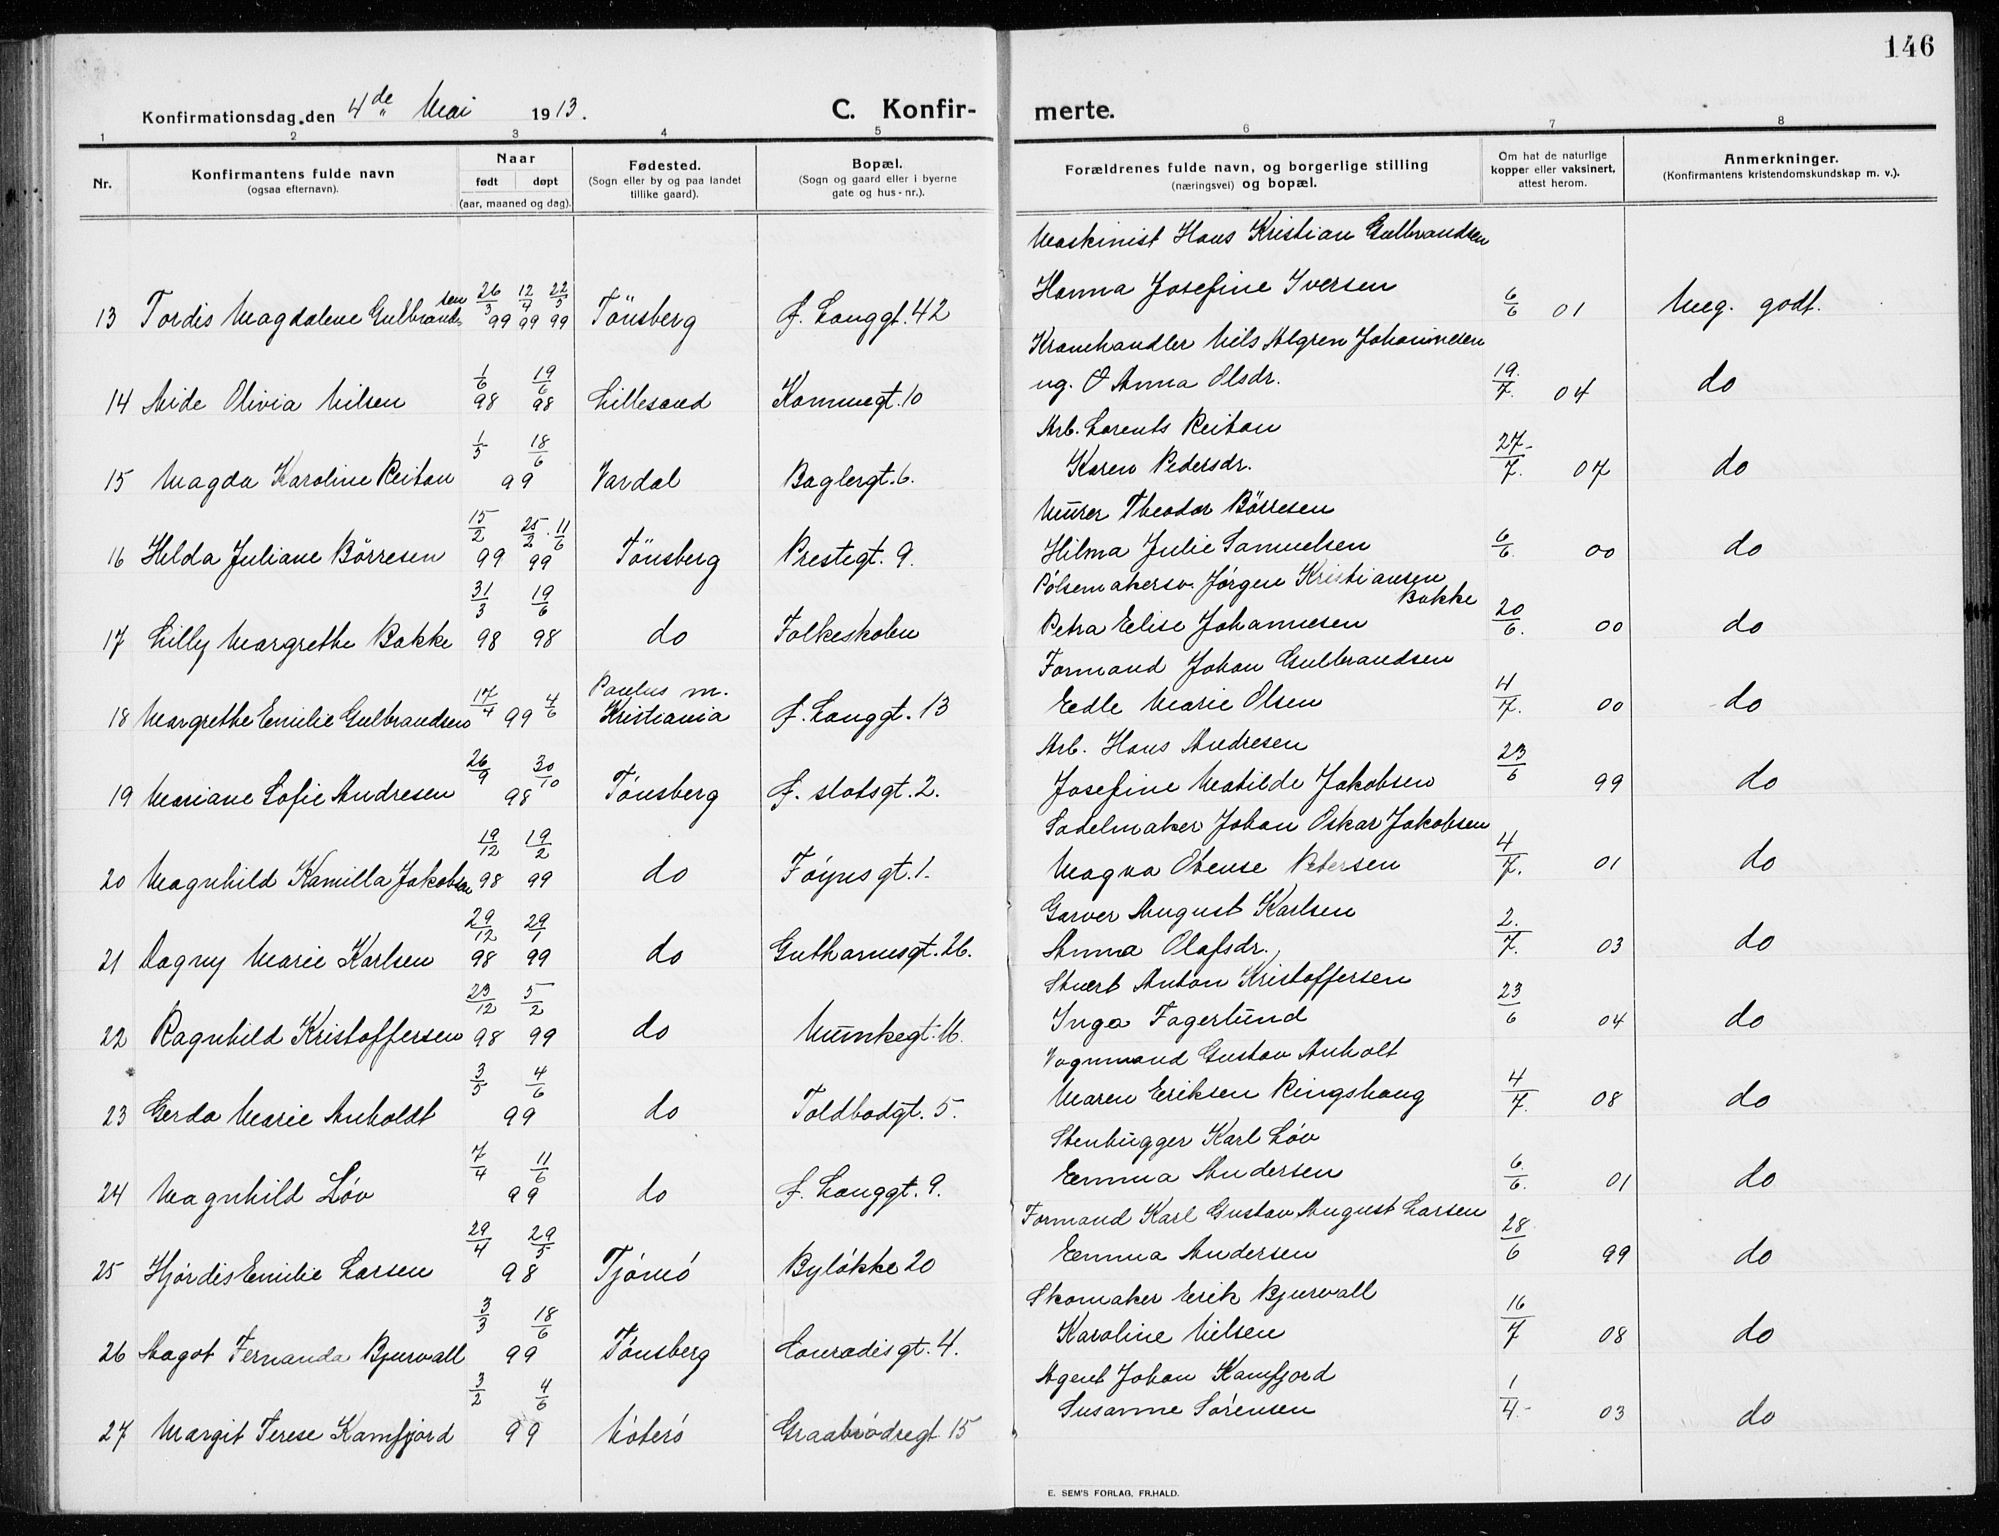 146
Konfirmationsdag den 4de Mai 1913.
C. Konfirmerte.
1 2 3 4 5 6 7 8
Nr.
Konfirmantens fulde navn
(ogsaa efternavn).
Naar
født døpt
(aar, maaned og dag).
Fødested.
(Sogn eller by og paa landet
tillike gaard).
Bopæl.
(Sogn og gaard eller i byerne
gate og hus-nr.).
Forældrenes fulde navn, og borgerlige stilling
(næringsvei) og bopæl.
Om hat de naturlige
kopper eller vaksinert,
attest herom.
Anmerkninger.
(Konfirmantens kristendomskundskap m. v.).
Maskinist Hans Kristian Gulbrandsen
13 Tordis Magdalene Gulbrandsen 26/3 99 12/4 99 22/5 99 Tönsberg f. Langgt. 42 Hanna Josefine Iversen 6/6 01 Meg. godt.
Kramhandler Nils Algren Johannesen
14 Aide Olivia Nilsen 1/6 98 19/6 98 Lillesand Kammegt. 10 ug. O Anna Olsdr. 19/7. 04 do
Arb. Lorents Reitan
15 Magda Karoline Reitan 1/5 18/6 99 Vardal Baglergt. 6. Karen Pedersdr. 27/7. 07 do
Murer Theodor Börresen
16 Helda Juliane Börresen 15/2 99 25/2 . 11/6 99 Tönsberg Prestegt. 9. Hilma Julie Samuelsen 6/6. 00 do
Pølsemakersv. Jørgen Kristiansen Bakke
17 Lilly Margrethe Bakke 31/3 98 19/6 98 do Folkeskolen Petra Elise Johannesen 20/6. 00 do
Formand Johan Gulbrandsen
18 Margrethe Emilie Gulbrandsen 17/4 99 4/6 Paulus m. Kristiania f. Langgt. 13 Edle Marie Olsen 4/7. 00 do
Arb. Hans Andresen
19 Mariane Sofie Andresen 26/9 30/10 98 Tønsberg f. slotsgt. 2. Josefine Matilde Jakobsen 23/6 99 do
Sadelmaker Johan Oskar Jakobsen
20 Magnhild Kamilla Jakobsen 19/12 98 19/2 99 do Føynsgt. 1. Magna Otense Petersen 4/7. 01 do
Garver August Karlsen
21 Dagny Marie Karlsen 29/12 98 29/1 99 do Guthormsgt. 26. Anna Olafsdr. 2./7. 03 do
Stuert Anton Kristoffersen
22 Ragnhild Kristoffersen 23/12 98 5/2 99 do Munkegt. 16. Inga Fagerlund 23/6 04 do
Vognmand Gustav Anholt
23 Gerda Marie Anholdt 3/5 4/6 99 do Toldbodgt. 5. Maren Eriksen Ringshaug 4/7. 08 do
Stenhugger Karl Løv
24 Magnhild Løv 7/4 11/6 99 do f. Langgt. 9. Emma Andersen 6/6. 01 do
Formand Karl Gustav August Larsen
25 Hjørdis Emilie Larsen 29/4 29/5 98 Tjømø Byløkke 20 Emma Andersen 28/6 99 do
Skomaker Erik Bjurvall
26 Aagot Fernanda Bjurvall 3/3 18/6 99 Tønsberg Conradisgt. 4. Karoline Nilsen 16/7 08 do
Agent Johan Kamfjord
27 Margit Terese Kamfjord 3/2 4/6 99 Nøterø Graabrødregt 15 Susanne Sørensen 1/4. 03 do
E. SEM'S FORLAG, FR.HALD.